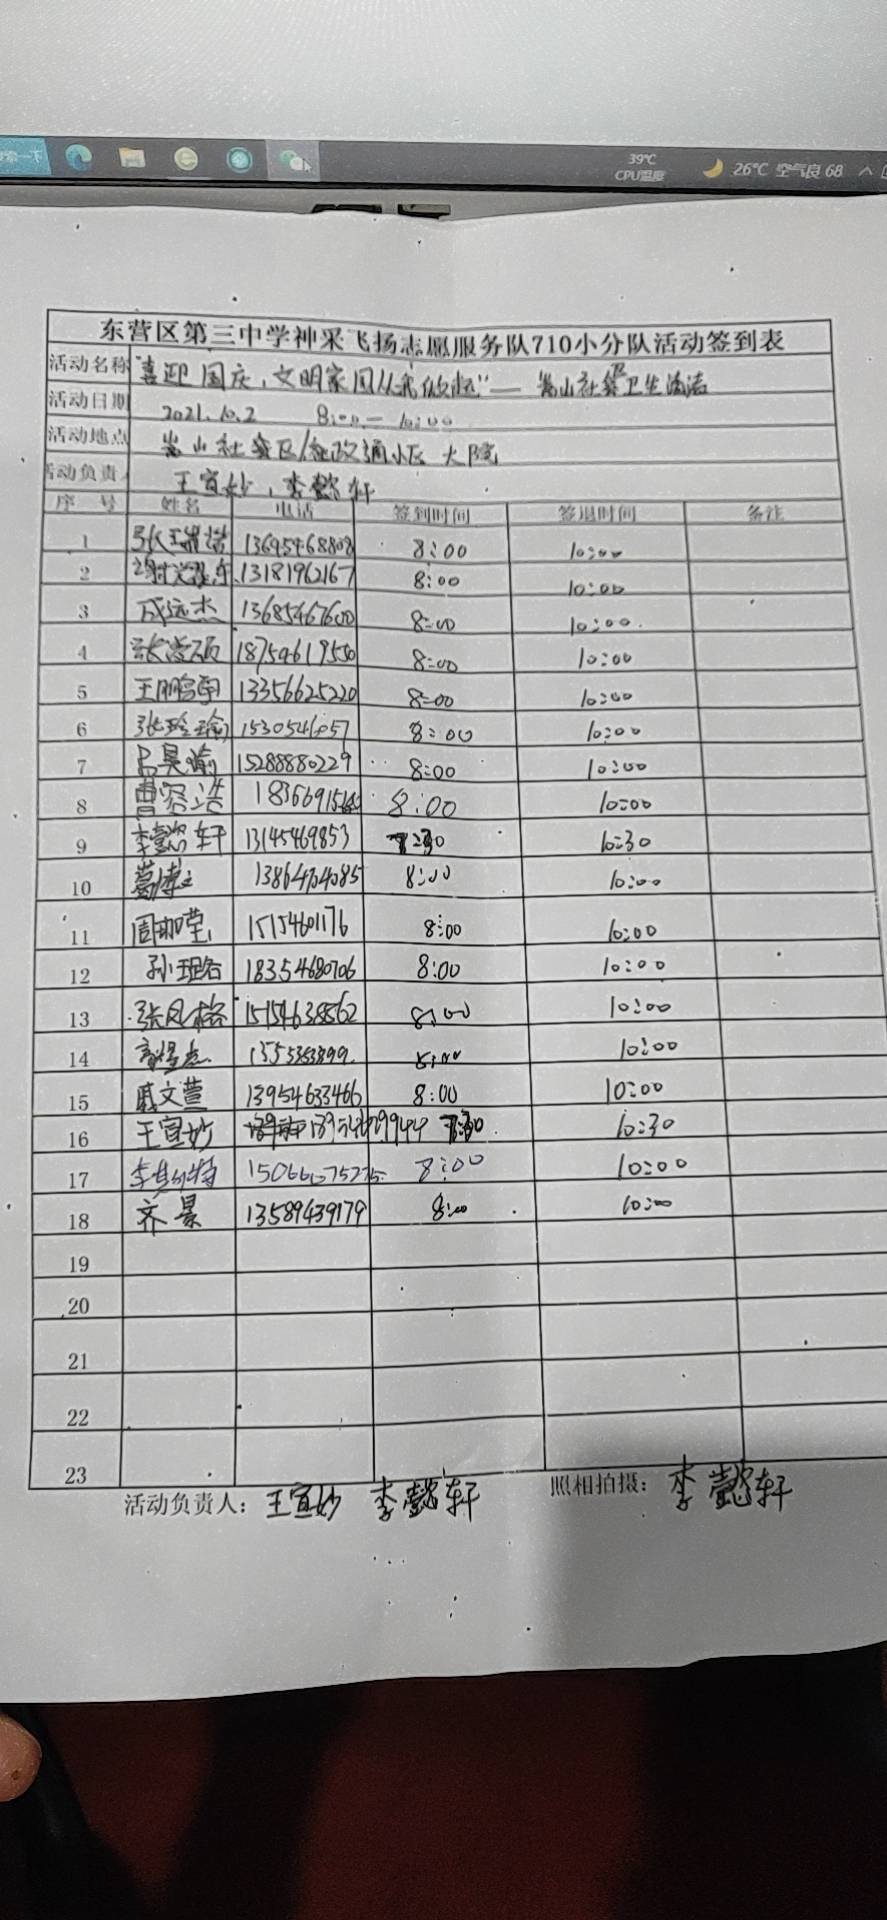 39℃
CPU温度
26°C 空气良 68
东营区第三中学神采飞扬志愿服务队710小分队活动签到表
活动名称 "喜迎国庆,文明家园从我做起"— 嵩山社区卫生清洁
活动日期 2021.10.2 8:00—10:00
活动地点 嵩山社区 小区大院
活动负责人 王宣妙,李懿轩
序号 姓名 电话 签到时间 签退时间 备注
1 13695468808 8:00 10:00
2 13181962167 8:00 10:00
3 成远杰 8:00 10:00
4 18754619550 8:00 10:00
5 王鹏宇 13356625220 8:00 10:00
6 8:00 10:00
7 吕昊瑜 15288880229 8:00 10:00
8 曹贤浩 8:00 10:00
9 李懿轩 13145469853 7:30 10:30
10 葛博文 13864704085 8:00 10:00
11 周珈莹 15154601176 8:00 10:00
12 18354680706 8:00 10:00
13 张风格 15154638562 8:00 10:00
14 8:00 10:00
15 戚文萱 13954633466 8:00 10:00
16 王宣妙 7:30 10:30
17 8:00 10:00
18 齐景 13589439179 8:00 10:00
19
20
21
22
23
活动负责人: 王宣妙 李懿轩 照相拍摄: 李懿轩